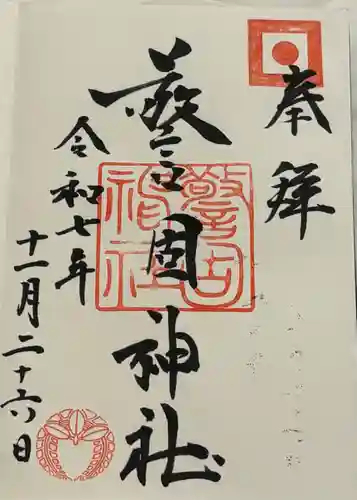 奉拝
警固神社
警固神社
令和七年
十一月二十六日